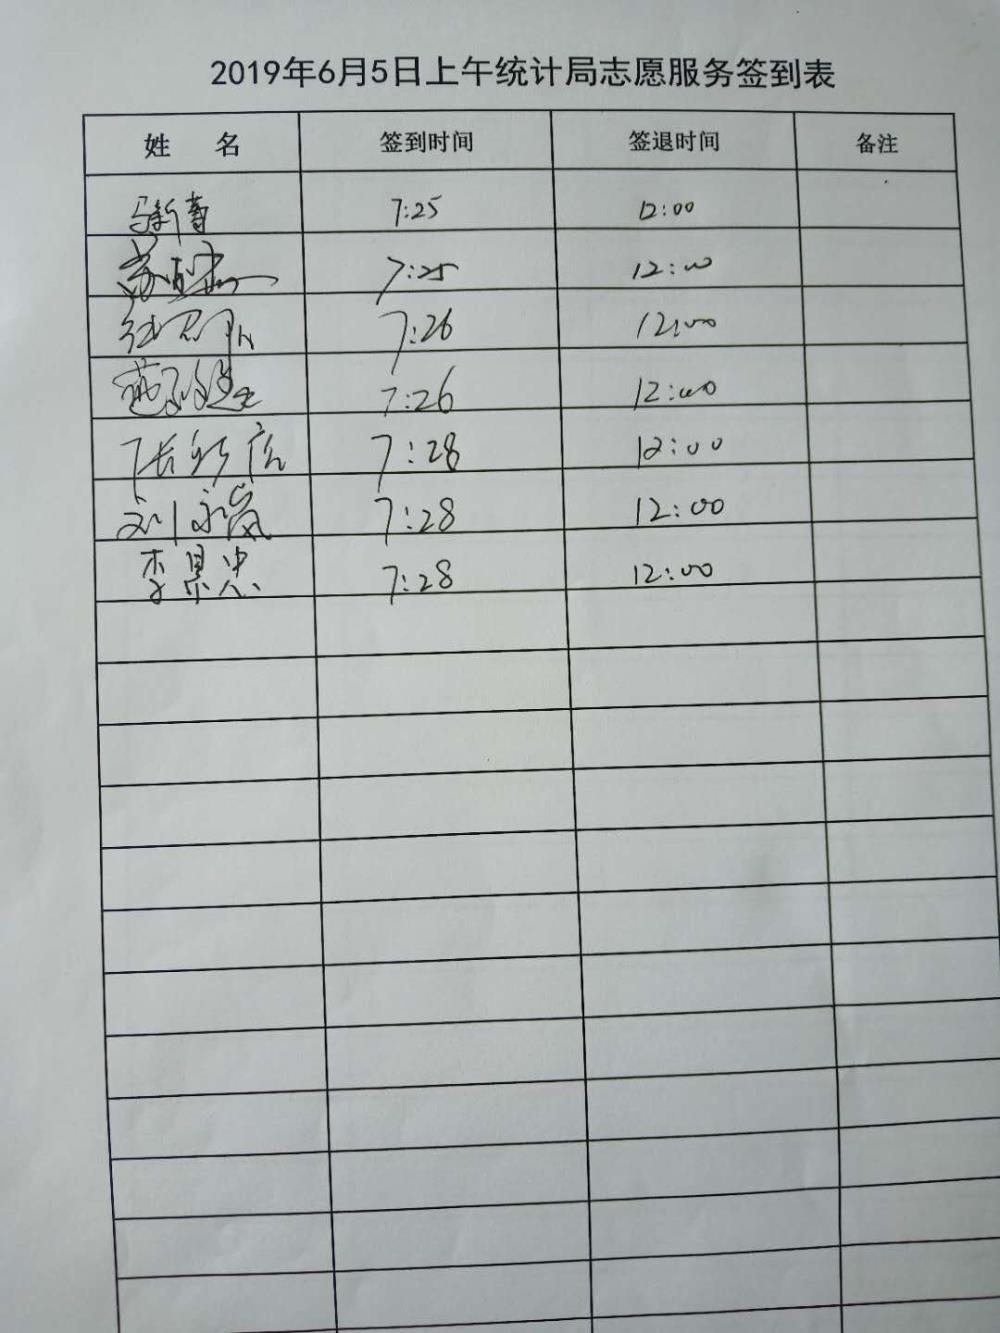 2019年6月5日上午统计局志愿服务签到表
姓 名 签到时间 签退时间 备注
马新 7:25 12:00
7:25 12:00
7:26 12:00
7:26 12:00
张 7:28 12:00
刘永岚 7:28 12:00
李景忠 7:28 12:00